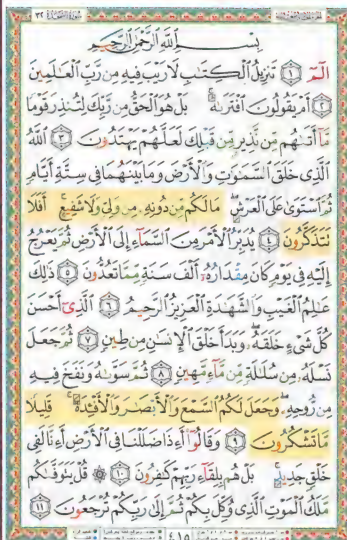 سورة السجدة ٣٢
بِسْمِ ٱللَّهِ ٱلرَّحْمَٰنِ ٱلرَّحِيمِ
الٓمٓ ١ تَنزِيلُ ٱلْكِتَٰبِ لَا رَيْبَ فِيهِ مِن رَّبِّ ٱلْعَٰلَمِينَ
٢ أَمْ يَقُولُونَ ٱفْتَرَىٰهُ ۚ بَلْ هُوَ ٱلْحَقُّ مِن رَّبِّكَ لِتُنذِرَ قَوْمًا
مَّآ أَتَىٰهُم مِّن نَّذِيرٍ مِّن قَبْلِكَ لَعَلَّهُمْ يَهْتَدُونَ ٣ ٱللَّهُ
ٱلَّذِى خَلَقَ ٱلسَّمَٰوَٰتِ وَٱلْأَرْضَ وَمَا بَيْنَهُمَا فِى سِتَّةِ أَيَّامٍ
ثُمَّ ٱسْتَوَىٰ عَلَى ٱلْعَرْشِ ۖ مَا لَكُم مِّن دُونِهِۦ مِن وَلِىٍّ وَلَا شَفِيعٍ ۚ أَفَلَا
تَتَذَكَّرُونَ ٤ يُدَبِّرُ ٱلْأَمْرَ مِنَ ٱلسَّمَآءِ إِلَى ٱلْأَرْضِ ثُمَّ يَعْرُجُ
إِلَيْهِ فِى يَوْمٍ كَانَ مِقْدَارُهُۥٓ أَلْفَ سَنَةٍ مِّمَّا تَعُدُّونَ ٥ ذَٰلِكَ
عَٰلِمُ ٱلْغَيْبِ وَٱلشَّهَٰدَةِ ٱلْعَزِيزُ ٱلرَّحِيمُ ٦ ٱلَّذِىٓ أَحْسَنَ
كُلَّ شَىْءٍ خَلَقَهُۥ ۖ وَبَدَأَ خَلْقَ ٱلْإِنسَٰنِ مِن طِينٍ ٧ ثُمَّ جَعَلَ
نَسْلَهُۥ مِن سُلَٰلَةٍ مِّن مَّآءٍ مَّهِينٍ ٨ ثُمَّ سَوَّىٰهُ وَنَفَخَ فِيهِ
مِن رُّوحِهِۦ ۖ وَجَعَلَ لَكُمُ ٱلسَّمْعَ وَٱلْأَبْصَٰرَ وَٱلْأَفْـِٔدَةَ ۚ قَلِيلًا
مَّا تَشْكُرُونَ ٩ وَقَالُوٓا۟ أَءِذَا ضَلَلْنَا فِى ٱلْأَرْضِ أَءِنَّا لَفِى
خَلْقٍ جَدِيدٍۭ ۚ بَلْ هُم بِلِقَآءِ رَبِّهِمْ كَٰفِرُونَ ١٠ ۞ قُلْ يَتَوَفَّىٰكُم
مَّلَكُ ٱلْمَوْتِ ٱلَّذِى وُكِّلَ بِكُمْ ثُمَّ إِلَىٰ رَبِّكُمْ تُرْجَعُونَ ١١
٤١٥